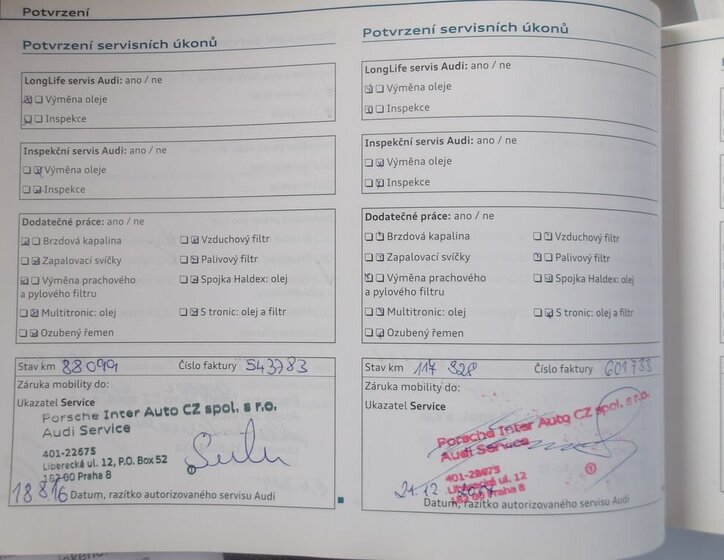 Potvrzení
Potvrzení servisních úkonů
LongLife servis Audi: ano / ne
Výměna oleje
Inspekce
Inspekční servis Audi: ano / ne
Výměna oleje
Inspekce
Dodatečné práce: ano / ne
Brzdová kapalina
Vzduchový filtr
Zapalovací svíčky
Palivový filtr
Výměna prachového
a pylového filtru
Spojka Haldex: olej
Multitronic: olej
S tronic: olej a filtr
Ozubený řemen
Stav km 88099 Číslo faktury 543783
Záruka mobility do:
Ukazatel Service
Porsche Inter Auto CZ spol. s r.o.
Audi Service
401-22675
Liberecká ul. 12, P.O. Box 52
182 00 Praha 8
18 8 16 Datum, razítko autorizovaného servisu Audi
Potvrzení servisních úkonů
LongLife servis Audi: ano / ne
Výměna oleje
Inspekce
Inspekční servis Audi: ano / ne
Výměna oleje
Inspekce
Dodatečné práce: ano / ne
Brzdová kapalina
Vzduchový filtr
Zapalovací svíčky
Palivový filtr
Výměna prachového
a pylového filtru
Spojka Haldex: olej
Multitronic: olej
S tronic: olej a filtr
Ozubený řemen
Stav km 117 828 Číslo faktury 601733
Záruka mobility do:
Ukazatel Service
Porsche Inter Auto CZ spol. s r.o.
Audi Service
401-22675
Liberecká ul. 12
182 00 Praha 8
21.12.2017
Datum, razítko autorizovaného servisu Audi